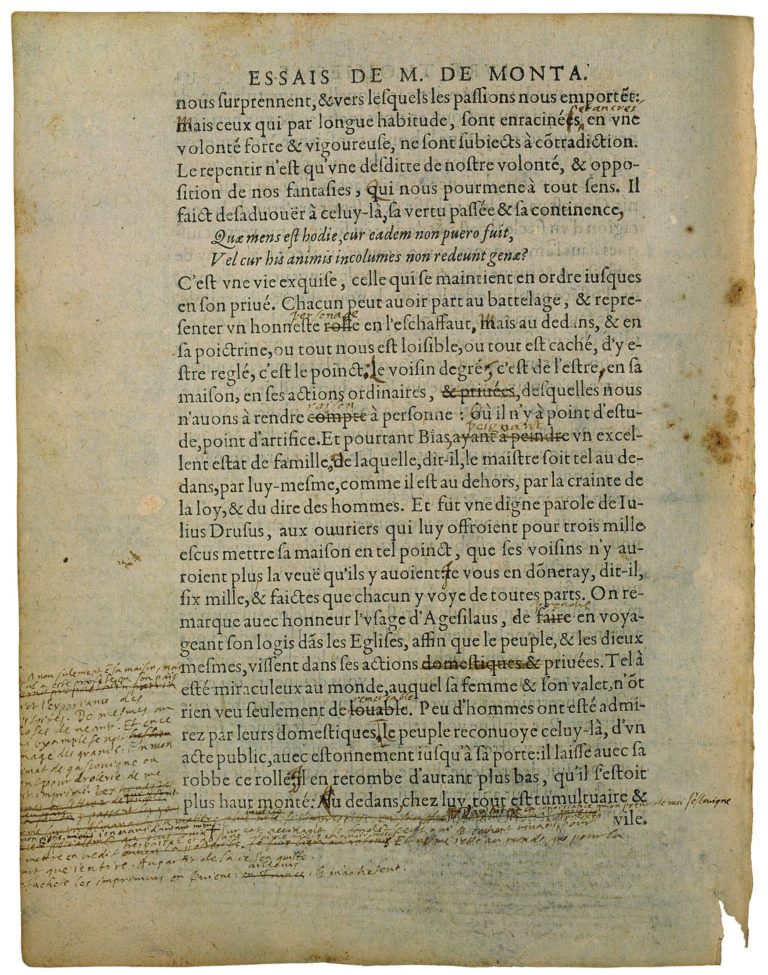 ESSAIS DE M. DE MONTA.
nous ſurprennent, & vers leſquels les paſſions nous emportẽt:
Mais ceux qui par longue habitude, ſont enracinées, en vne
volonté forte & vigoureuſe, ne ſont ſubiects à cõtradiction.
Le repentir n'eſt qu'vne deſditte de noſtre volonté, & oppo-
ſition de nos fantaſies, qui nous pourmene à tout ſens. Il
faict deſaduouër à celuy-là, ſa vertu paſſée & ſa continence,
Quæ mens eſt hodie, cur eadem non puero fuit,
Vel cur his animis incolumes non redeunt genæ?
C'eſt vne vie exquiſe, celle qui ſe maintient en ordre iuſques
en ſon priué. Chacun peut auoir part au battelage, & repre-
personage
ſenter vn honneſte rolle en l'eſchaffaut, Mais au dedans, & en
ſa poictrine, ou tout nous eſt loiſible, ou tout eſt caché, d'y e-
ſtre reglé, c'eſt le poinct. Le voiſin degré, c'eſt de l'eſtre, en ſa
maiſon, en ſes actions ordinaires, & priuées, deſquelles nous
raison
n'auons à rendre compte à perſonne: Où il n'y à point d'eſtu-
peignant
de, point d'artifice. Et pourtant Bias, ayant à peindre vn excel-
lent eſtat de famille, de laquelle, dit-il, le maiſtre ſoit tel au de-
dans, par luy-meſme, comme il eſt au dehors, par la crainte de
la loy, & du dire des hommes. Et fut vne digne parole de Iu-
lius Druſus, aux ouuriers qui luy offroient pour trois mille
eſcus mettre ſa maiſon en tel poinct, que ſes voiſins n'y au-
roient plus la veuë qu'ils y auoient Ie vous en dõneray, dit-il,
ſix mille, & faictes que chacun y voye de toutes parts. On re-
prendre
marque auec honneur l'vſage d'Ageſilaus, de faire en voya-
geant ſon logis dãs les Egliſes, affin que le peuple, & les dieux
meſmes, viſſent dans ſes actions domeſtiques & priuées. Tel à
eſté miraculeux au monde, auquel ſa femme & ſon valet, n'õt
remercable
rien veu ſeulement de louable. Peu d'hommes ont eſté admi-
rez par leurs domeſtiques, le peuple reconuoye celuy-là, d'vn
acte public, auec eſtonnement iuſqu'à ſa porte: il laiſſe auec ſa
robbe ce rolle, il en retombe d'autant plus bas, qu'il ſ'eſtoit
plus haut monté: Au dedans, chez luy, tout eſt tumultuaire &
vile.
non sulement e sa maison, mai
l'experiance des
De mesmes au
de neant. Et en ce
exemple se voit
mage des grands. En mon
mat de gascouigne on
pour drolerie de me
imprimé.
de moi s'esloigne
mettre en credit
que j'en tire. Au partir de la ie l'en quitte
ailleurs
J'achete les imprimurs en Guiene: en France ils m'achetent.